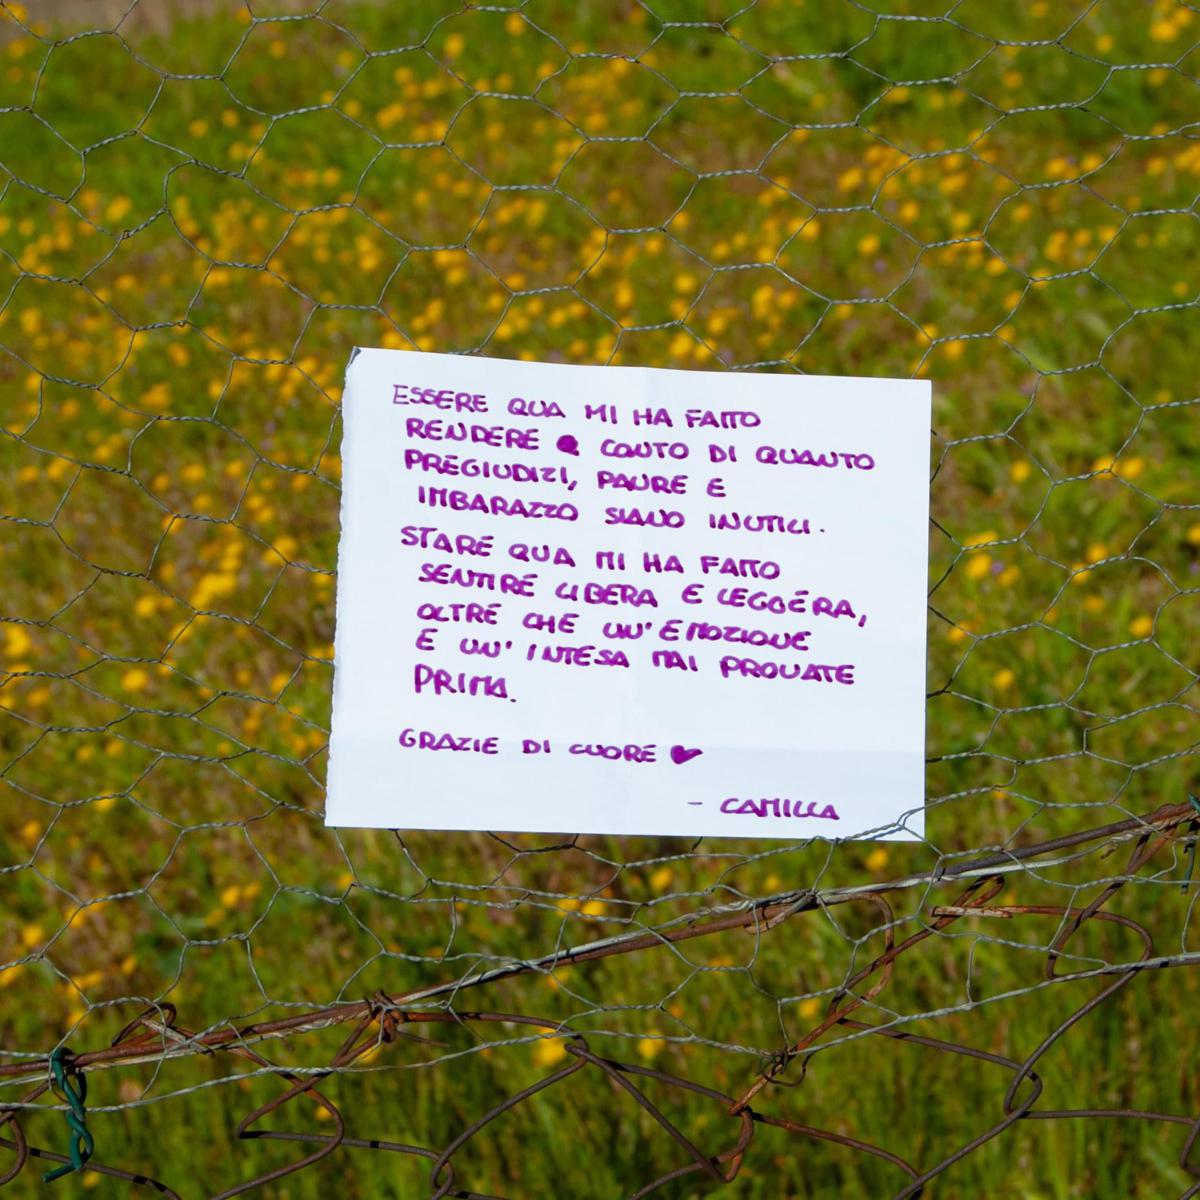 ESSERE QUA MI HA FATTO
RENDERE CONTO DI QUANTO
PREGIUDIZI, PAURE E
IMBARAZZO SIANO INUTILI.
STARE QUA MI HA FATTO
SENTIRE LIBERA E LEGGERA,
OLTRE CHE UN' EMOZIONE
E UN' INTESA MAI PROVATE
PRIMA.
GRAZIE DI CUORE ♥
- CAMILLA